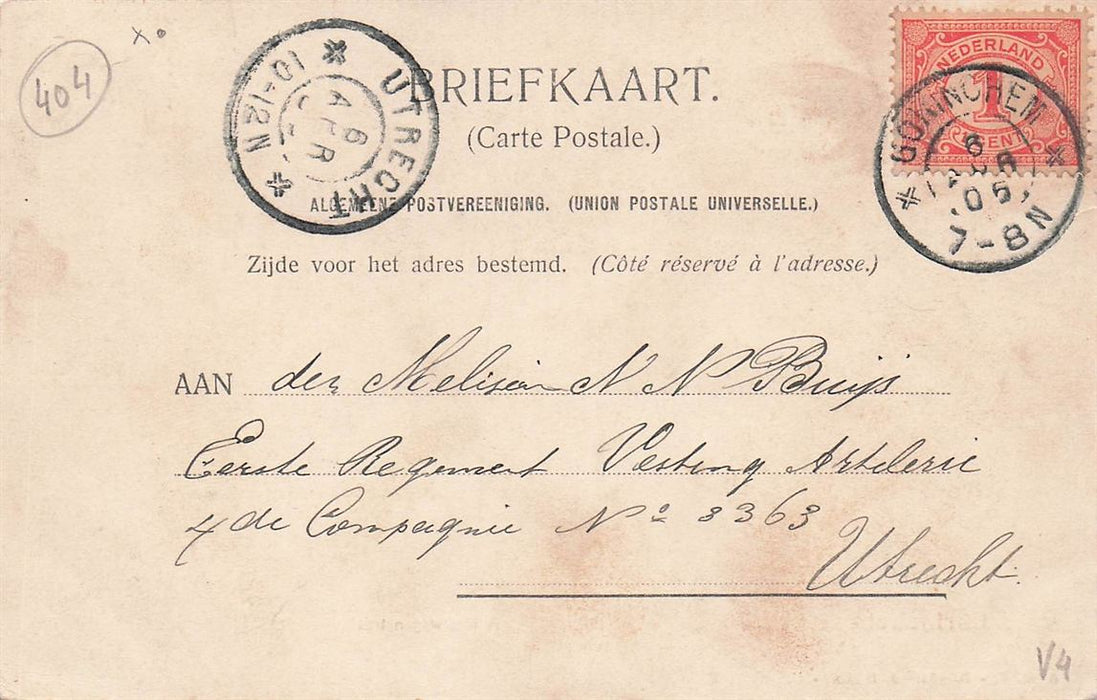 404
xo
UTRECHT
6 APR
10-12N
BRIEFKAART.
(Carte Postale.)
NEDERLAND
1
CENT
GORINCHEM
6 APR 05
7-8N
ALGEMEENE POSTVEREENIGING. (UNION POSTALE UNIVERSELLE.)
Zijde voor het adres bestemd. (Côté réservé à l'adresse.)
AAN den Melisein N N Buijs
Eerste Regement Vesting Artelerie
4 de Compagnie No 3363
Utrecht.
V4